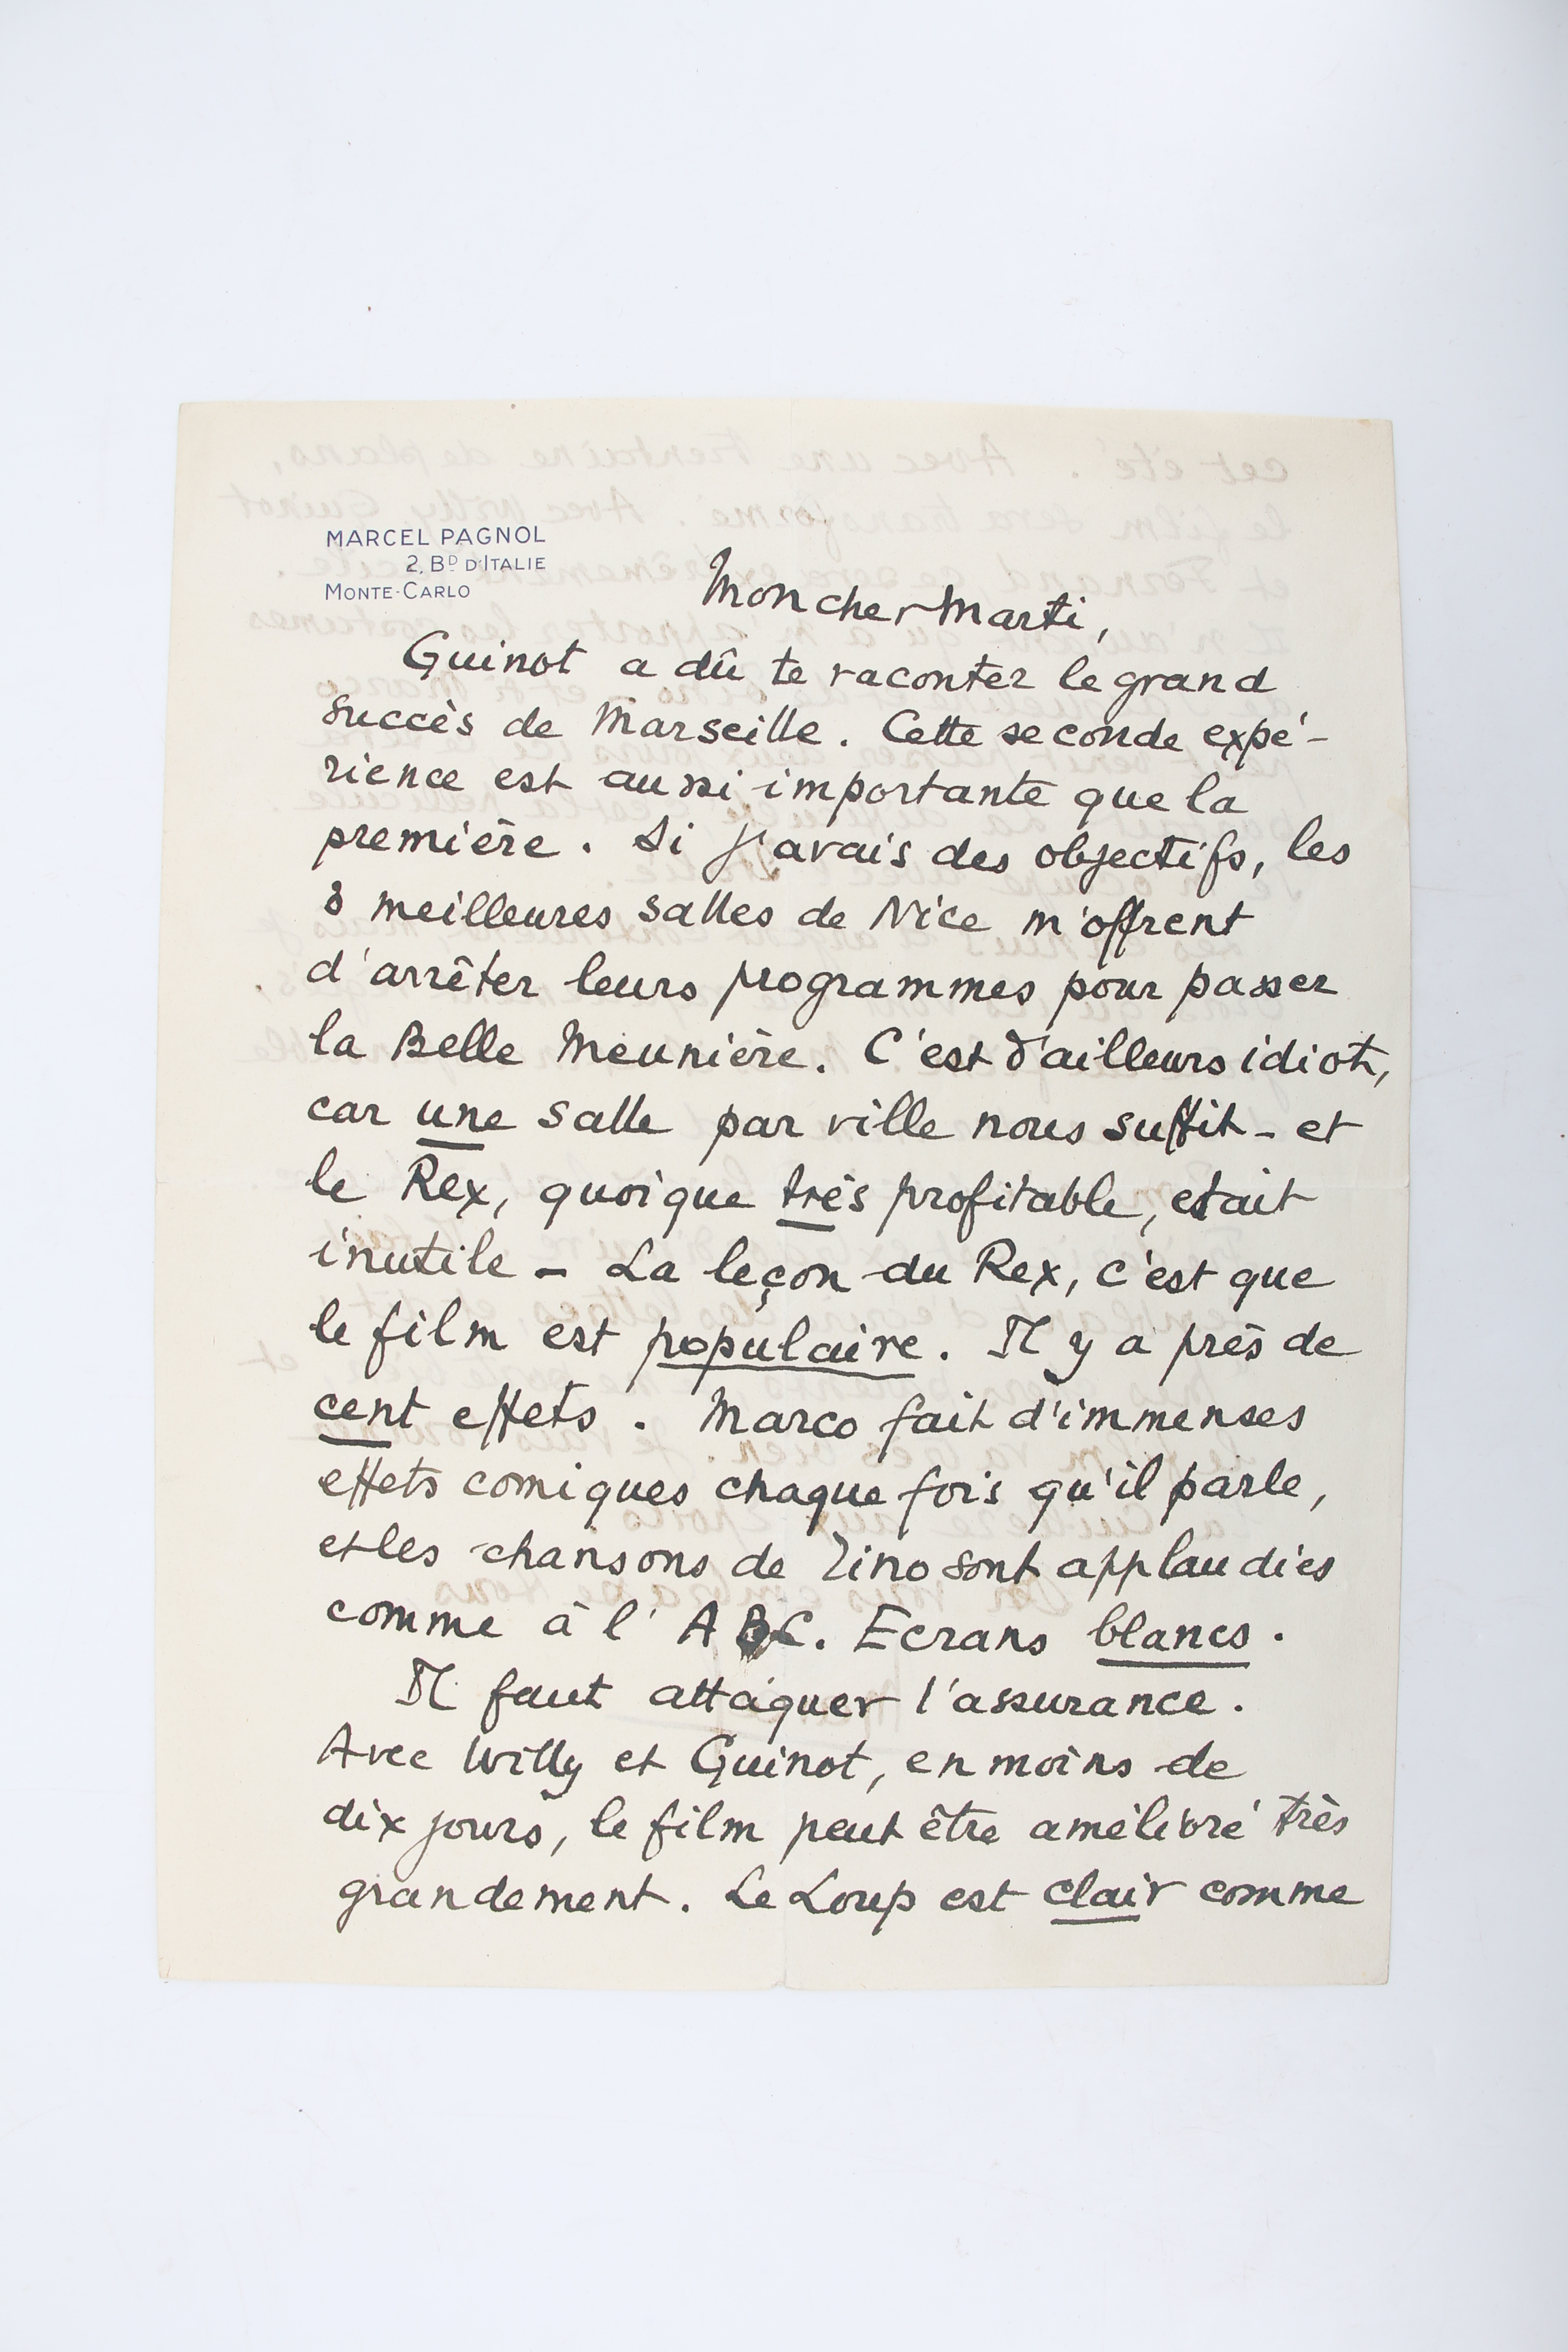 MARCEL PAGNOL
2, BD D'ITALIE
MONTE-CARLO
Mon cher Marti,
Guinot a dû te raconter le grand
succès de Marseille. Cette seconde expé-
rience est aussi importante que la
première. Si j'avais des objectifs, les
3 meilleures salles de Nice m'offrent
d'arrêter leurs programmes pour passer
la Belle Meunière. C'est d'ailleurs idiot,
car une salle par ville nous suffit - et
le Rex, quoique très profitable, etait
inutile - La leçon du Rex, c'est que
le film est populaire. Il y a près de
cent effets. Marco fait d'immenses
effets comiques chaque fois qu'il parle,
et les chansons de Tino sont applaudies
comme à l'ABC. Ecrans blancs.
Il faut attaquer l'assurance.
Avec Willy et Guinot, en moins de
dix jours, le film peut être amélioré très
grandement. Le Loup est clair comme